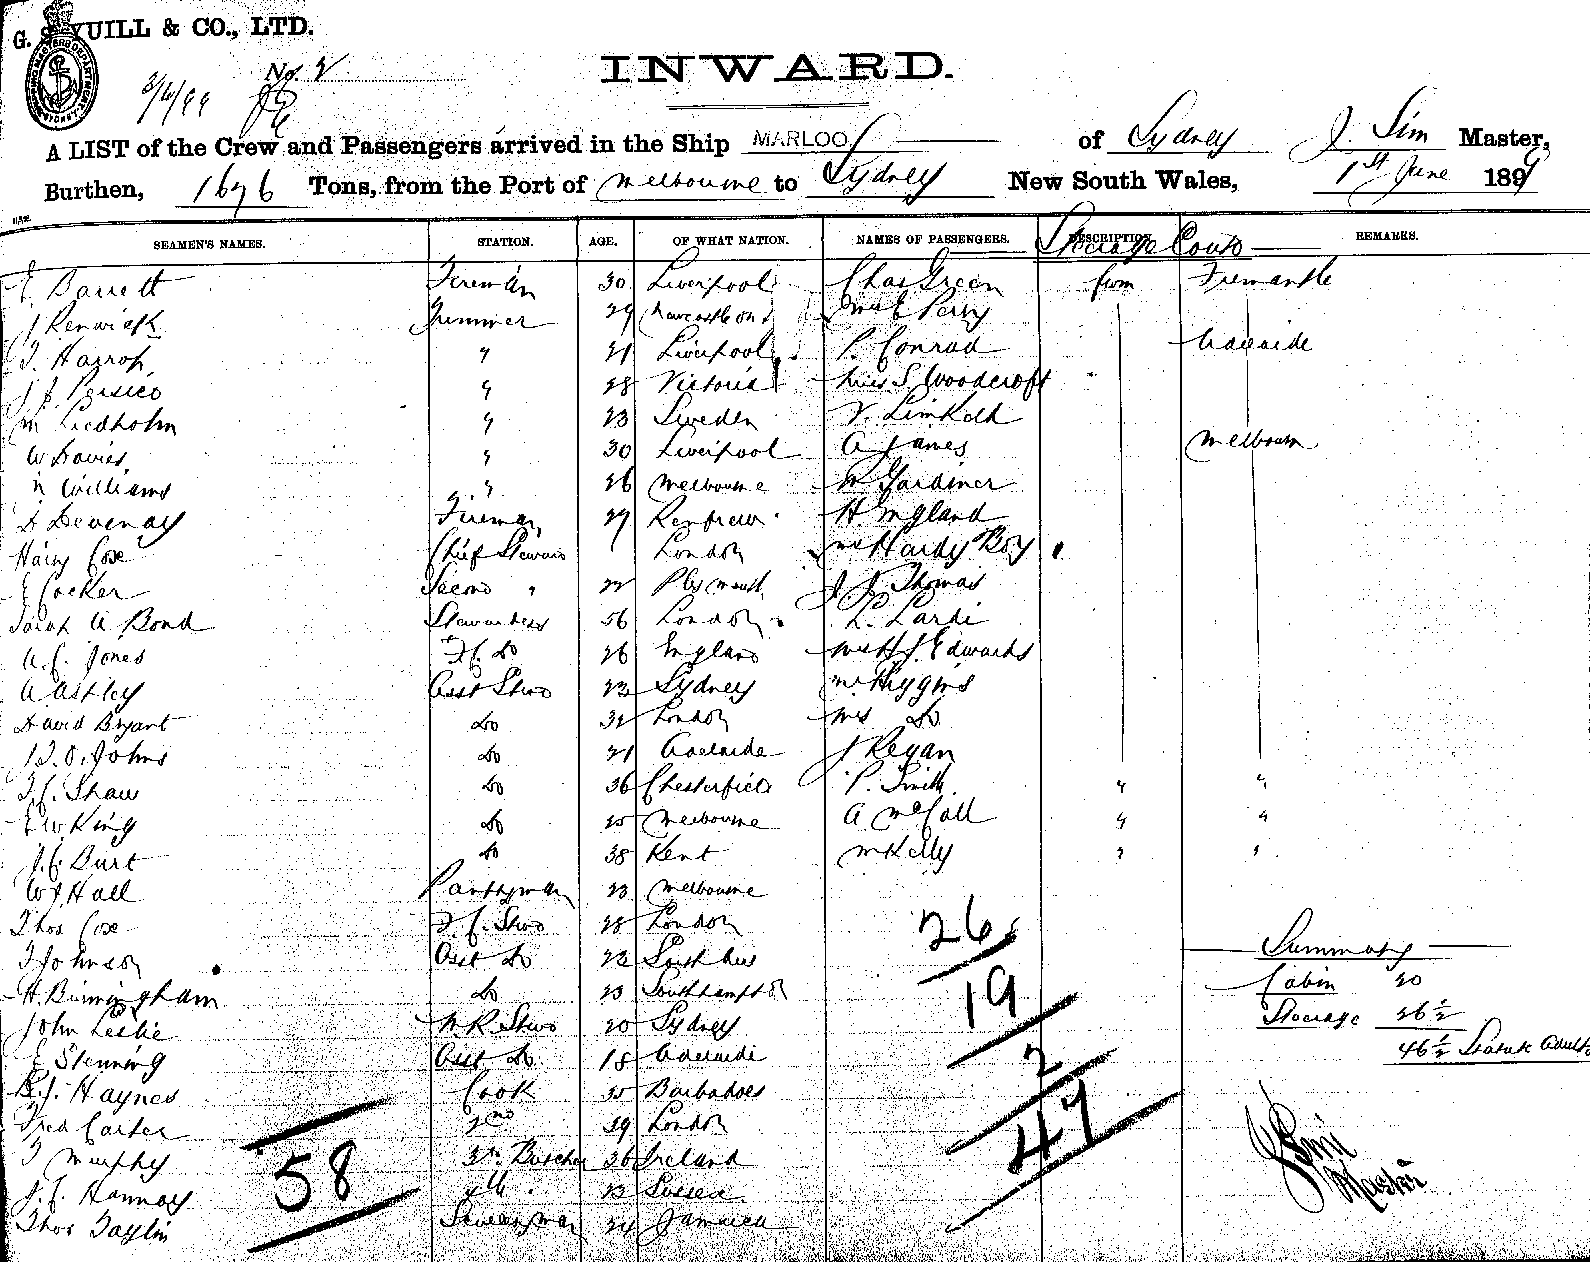 G. S. YUILL & CO., LTD.
No. 2
INWARD.
3/6/99
A LIST of the Crew and Passengers arrived in the Ship MARLOO of Sydney J. Sim Master,
Burthen, 1696 Tons, from the Port of Melbourne to Sydney New South Wales, 1st June 1899
SEAMEN'S NAMES. STATION. AGE. OF WHAT NATION. NAMES OF PASSENGERS. DESCRIPTION. REMARKS.
Steerage Contd
E. Barrett Fireman 30 Liverpool Chas Green from Fremantle
J Renwick Trimmer 29 Newcastle on T Mrs E Perry
T. Harrop " 21 Liverpool P. Conrad Adelaide
J J. Persico " 28 Victoria Miss S. Woodcroft
M Liedholm " 23 Sweden V.
W Davies " 30 Liverpool A James Melbourn
N Williams " 26 Melbourne W Gardiner
D Devenay Fireman 29 Renfrew H England
Harry Coxe Chief Steward London Mrs Hardy Boy
E Cocker Second " 22 Plymouth J J Thomas
Sarah A Bond Stewardess 56 London L. Lardi
A. C. Jones F.C. Do 26 England Mrs H J Edwards
A Astley Asst Stwd 22 Sydney Mr Higgins
David Bryant Do 32 London Mrs Do
D. O. Johns Do 21 Adelaide J Regan
T. C. Shaw Do 36 Chesterfield P. Smith " "
E W King Do 25 Melbourne A McCall " "
J. C. Burt Do 38 Kent M Kelly " "
W J Hall Pantryman 23 Melbourne
Thos Coxe F. C. Stwd 28 London 26
Summary
T Johnson Asst Do 22
H. Birmingham Do 23 Southampton 19 Cabin 20
John Leslie M. R. Stwd 20 Sydney Steerage 26 ½
E Stenning Asst Do 18 Adelaide 2 46 ½ Statute Adults
R. J. Haynes Cook 35 Barbadoes
Fred Carter 2nd 29 London 47
T Murphy 3rd Butcher 26 Ireland
58
J. Sim
Master
J. C. Hannay 4th 23 Sussex
Thos Taylin 24 Jamaica